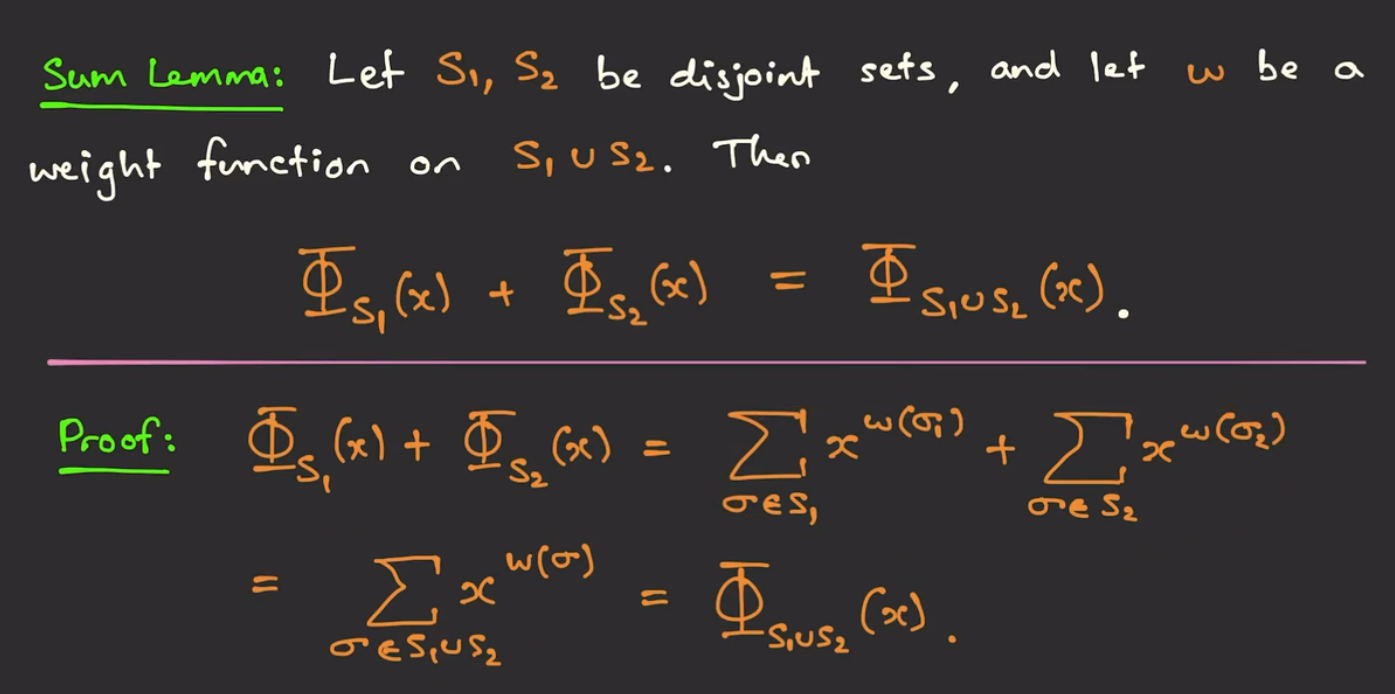 Sum Lemma: Let S₁, S₂ be disjoint sets, and let w be a
weight function on S₁ ∪ S₂. Then
Φ_{S₁}(x) + Φ_{S₂}(x) = Φ_{S₁∪S₂}(x).
Proof: Φ_{S₁}(x) + Φ_{S₂}(x) = ∑_{σ∈S₁} x^{w(σ₁)} + ∑_{σ∈S₂} x^{w(σ₂)}
= ∑_{σ∈S₁∪S₂} x^{w(σ)} = Φ_{S₁∪S₂}(x).